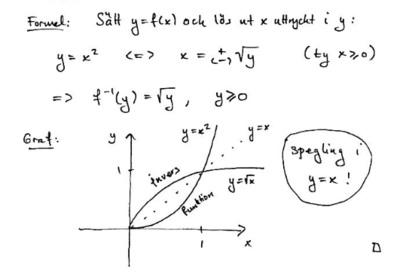 Formel: Sätt y=f(x) och lös ut x uttryckt i y:
y = x² <=> x = (±)√y (ty x≥0)
=> f⁻¹(y) = √y, y≥0
Graf: y y=x² y=x
invers
1
y=√x
funktion
1 x
Spegling i
y=x !